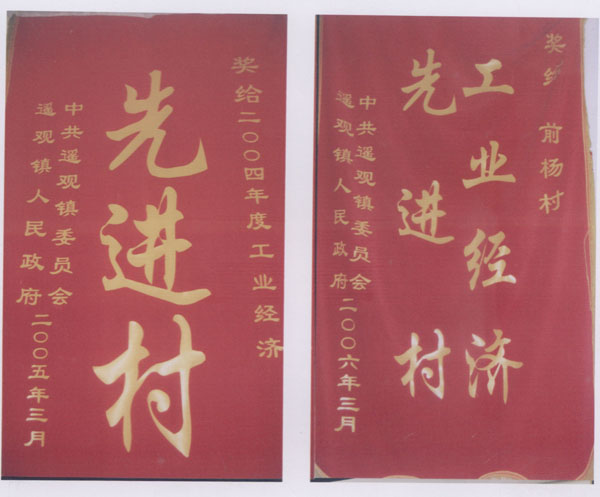 奖给二〇〇四年度工业经济
先进村
中共遥观镇委员会
遥观镇人民政府
二〇〇五年三月
奖给 前杨村
工业经济
先进村
中共遥观镇委员会
遥观镇人民政府
二〇〇六年三月